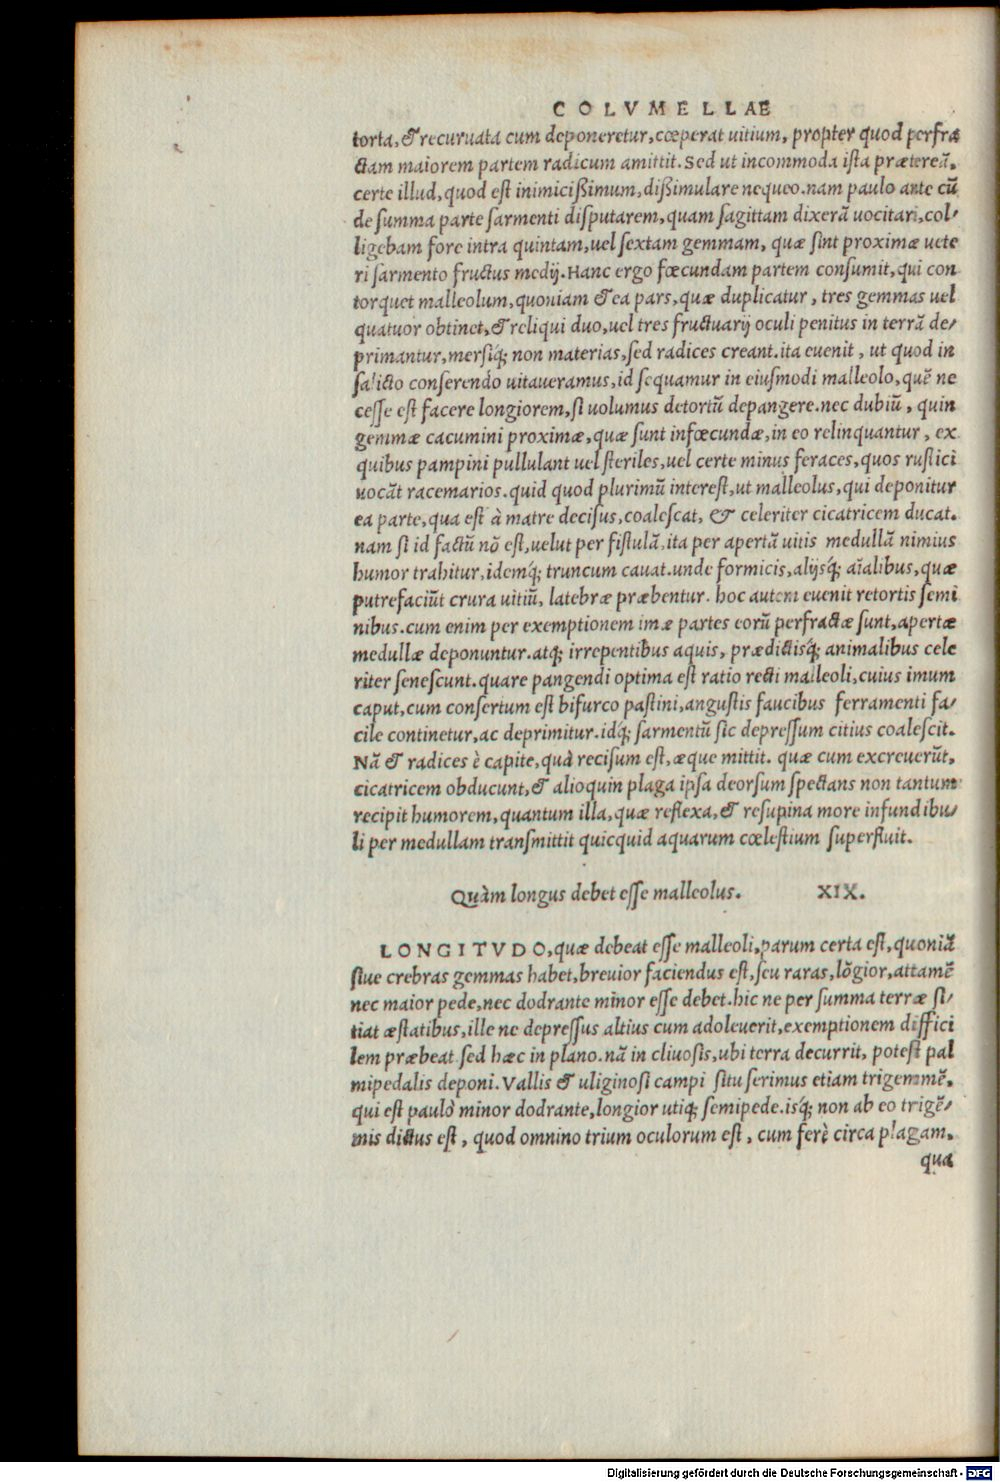 COLVMELLAE
torta, & recuruata cum deponeretur, cœperat uitium, propter quod perfra
ctam maiorem partem radicum amittit. Sed ut incommoda ista prætereā,
certe illud, quod est inimicißimum, dißimulare nequeo. nam paulo ante cū
de summa parte sarmenti disputarem, quam sagittam dixerā uocitari, col/
ligebam fore intra quintam, uel sextam gemmam, quæ sint proximæ uete
ri sarmento fructus medij. Hanc ergo fœcundam partem consumit, qui con
torquet malleolum, quoniam & ea pars, quæ duplicatur, tres gemmas uel
quatuor obtinet, & reliqui duo, uel tres fructuarij oculi penitus in terrā de/
primantur, mersiq́; non materias, sed radices creant. ita euenit, ut quod in
salicto conserendo uitaueramus, id sequamur in eiusmodi malleolo, quē ne
cesse est facere longiorem, si uolumus detortū depangere. nec dubiū, quin
gemmæ cacumini proximæ, quæ sunt infœcundæ, in eo relinquantur, ex
quibus pampini pullulant uel steriles, uel certe minus feraces, quos rustici
uocāt racemarios. quid quod plurimū interest, ut malleolus, qui deponitur
ea parte, qua est à matre decisus, coalescat, & celeriter cicatricem ducat.
nam si id factū nō est, uelut per fistulā, ita per apertā uitis medullā nimius
humor trahitur, idemq́; truncum cauat. unde formicis, alijsq́; aīalibus, quæ
putrefaciūt crura uitiū, latebræ præbentur. hoc autem euenit retortis semi
nibus. cum enim per exemptionem imæ partes eorū perfractæ sunt, apertæ
medullæ deponuntur. atq; irrepentibus aquis, prædictisq́; animalibus cele
riter senescunt. quare pangendi optima est ratio recti malleoli, cuius imum
caput, cum consertum est bifurco pastini, angustis faucibus ferramenti fa/
cile continetur, ac deprimitur. idq́; sarmentū sic depressum citius coalescit.
Nā & radices è capite, quà recisum est, æque mittit. quæ cum excreuerūt,
cicatricem obducunt, & alioquin plaga ipsa deorsum spectans non tantum
recipit humorem, quantum illa, quæ reflexa, & resupina more infundibu/
li per medullam transmittit quicquid aquarum cœlestium superfluit.
Quàm longus debet esse malleolus. XIX.
LONGITVDO, quæ debeat esse malleoli, parum certa est, quoniā
siue crebras gemmas habet, breuior faciendus est, seu raras, lōgior, attamē
nec maior pede, nec dodrante minor esse debet. hic ne per summa terræ si/
tiat æstatibus, ille ne depressus altius cum adoleuerit, exemptionem diffici
lem præbeat. sed hæc in plano. nā in cliuosis, ubi terra decurrit, potest pal
mipedalis deponi. Vallis & uliginosi campi situ serimus etiam trigemmē,
qui est paulò minor dodrante, longior utiq; semipede. isq́; non ab eo trigē/
mis dictus est, quod omnino trium oculorum est, cum ferè circa plagam,
qua
Digitalisierung gefördert durch die Deutsche Forschungsgemeinschaft - DFG